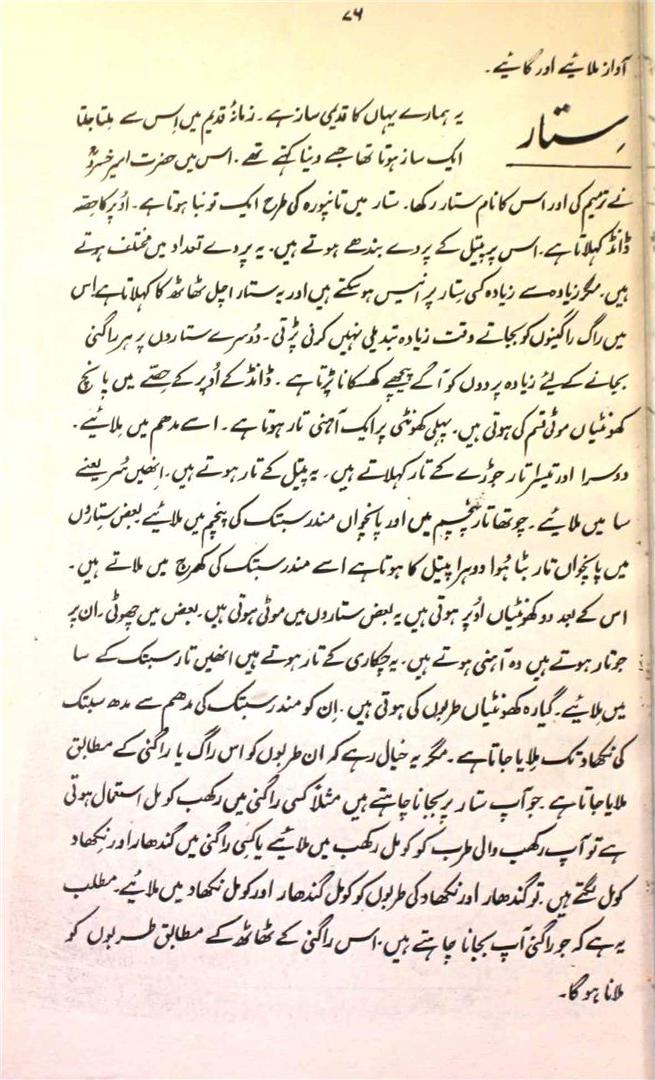 ۷۶
آواز ملائیے اور گائیے۔
سِتار
یہ ہمارے یہاں کا قدیمی ساز ہے۔ زمانۂ قدیم میں اِس سے مِلتا جلتا
ایک ساز ہوتا تھا جسے وینا کہتے تھے۔ اس میں حضرت امیر خسروؒ
نے ترمیم کی اور اس کا نام ستار رکھا۔ ستار میں تانپورہ کی طرح ایک تونبا ہوتا ہے۔ اوُپر کا حِصّہ
ڈانڈ کہلاتا ہے۔ اس پر پیتل کے پردے بندھے ہوتے ہیں۔ یہ پردے تعداد میں مختلف ہوتے
ہیں۔ مگر زیادہ سے زیادہ کسی سِتار پر انیس ہو سکتے ہیں اور یہ ستار اچل ٹھاٹھ کا کہلاتا ہے اِس
میں راگ راگنیوں کو بجاتے وقت زیادہ تبدیلی نہیں کرنی پڑتی۔ دُوسرے ستاروں پر ہر راگنی
بجانے کے لیئے زیادہ پردوں کو آگے پیچھے کھسکانا پڑتا ہے۔ ڈانڈ کے اُوپر کے حِصّے میں پانچ
کھونٹیاں موٹی قسم کی ہوتی ہیں۔ پہلی کھونٹی پر ایک آہنی تار ہوتا ہے۔ اسے مدھم میں مِلائیے۔
دوسرا اور تیسرا تار جوڑے کے تار کہلاتے ہیں۔ یہ پیتل کے تار ہوتے ہیں۔ انھیں سُر یعنے
سا میں ملائیے۔ چوتھا تار پنچم میں اور پانچواں مندر سبتک کی پنچم میں ملائیے بعض ستاروں
میں پانچواں تار بٹا ہُوا دوہرا پیتل کا ہوتا ہے اسے مندر سبتک کی کھرج میں ملاتے ہیں۔
اس کے بعد دو کھونٹیاں اوُپر ہوتی ہیں یہ بعض ستاروں میں موٹی ہوتی ہیں۔ بعض میں چھوٹی۔ ان پر
جو تار ہوتے ہیں وہ آہنی ہوتے ہیں۔ یہ چکاری کے تار ہوتے ہیں انھیں تار سبتک کے سا
میں مِلائیے۔ گیارہ کھونٹیاں طربوں کی ہوتی ہیں۔ اِن کو مندر سبتک کی مدھم سے مدھ سبتک
کی نکھاد تک مِلایا جاتا ہے۔ مگر یہ خیال رہے کہ ان طربوں کو اس راگ یا راگنی کے مطابق
ملایا جاتا ہے۔ جو آپ ستار پر بجانا چاہتے ہیں مثلاً کسی راگنی میں رکھب کومل استعمال ہوتی
ہے تو آپ رکھب والی طرب کو کومل رکھب میں ملائیے یا کسی راگنی میں گندھار اور نکھاد
کومل لگتے ہیں۔ تو گندھار اور نکھاد کی طربوں کو کومل گندھار اور کومل نکھاد میں ملائیے۔ مطلب
یہ ہے کہ جو راگنی آپ بجانا چاہتے ہیں۔ اس راگنی کے ٹھاٹھ کے مطابق طربوں کو
ملانا ہو گا۔